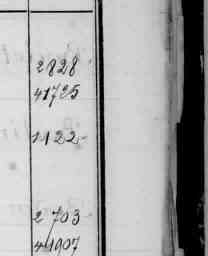 2828
41725
1122
2703
41907